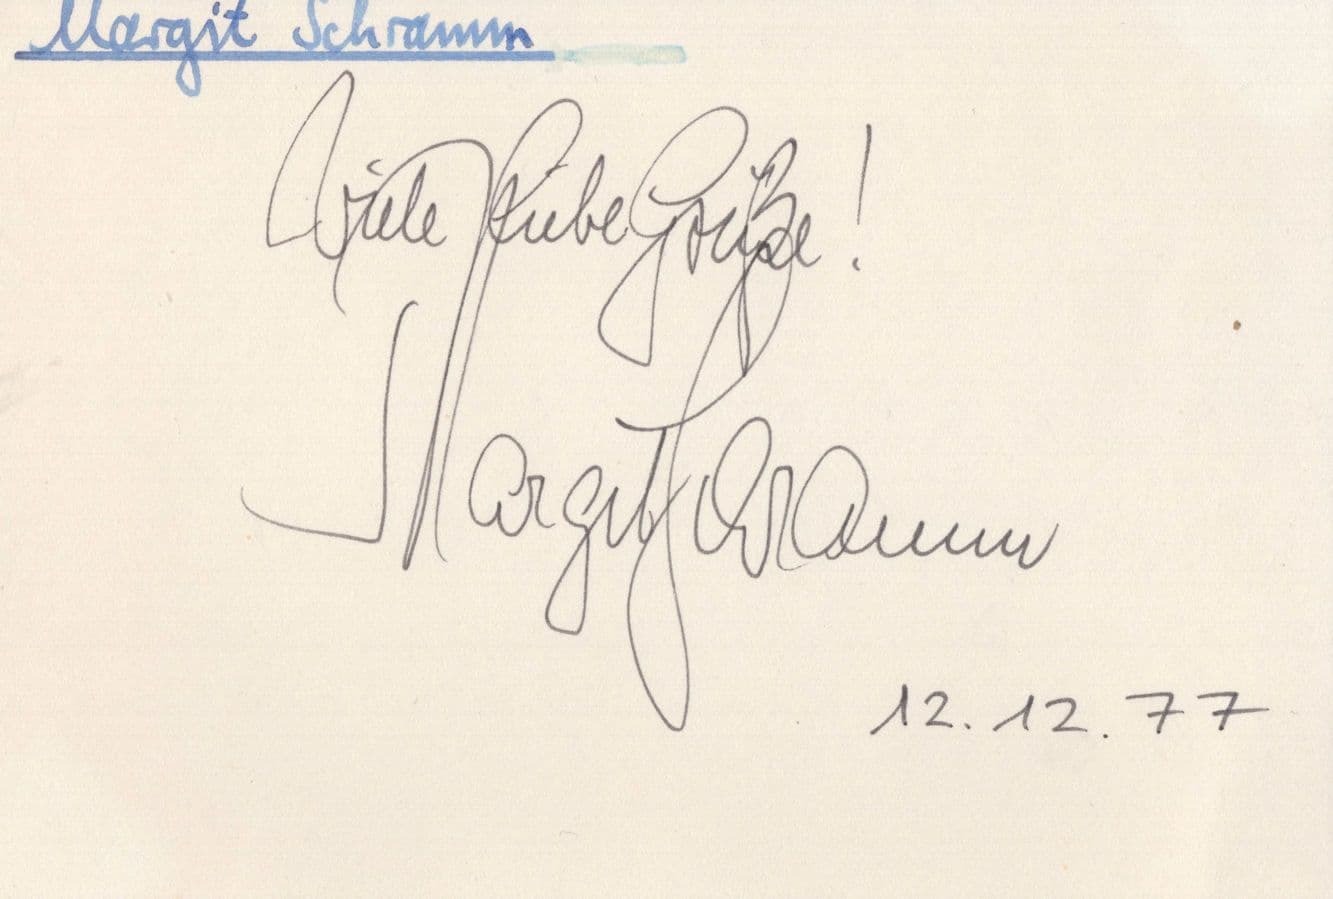 Margit Schramm
Viele liebe Grüße!
Margit Schramm
12.12.77